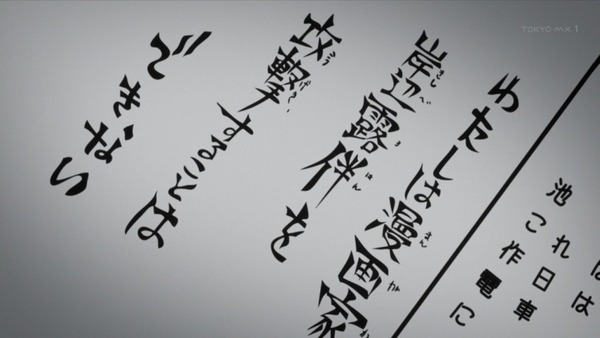 TOKYO MX 1
わたしは漫画家
岸辺露伴を
攻撃することは
できない
はは
これ日車
池こ作電に